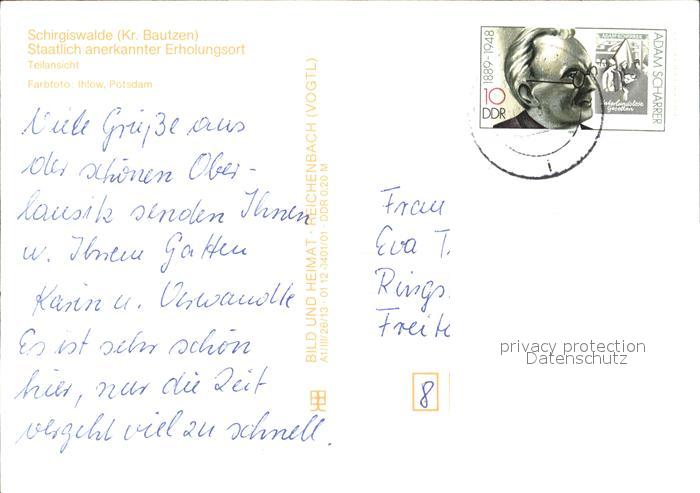 Schirgiswalde (Kr. Bautzen)
Staatlich anerkannter Erholungsort
Teilansicht
Farbfoto: Ihlow, Potsdam
Viele Grüße aus
der schönen Ober-
lausitz senden Ihnen
u. Ihrem Gatten
Karin u. Verwandte
Es ist sehr schön
hier, nur die Zeit
vergeht viel zu schnell.
BILD UND HEIMAT · REICHENBACH (VOGTL)
A1/III/26/13 · 01 12 0401/01 · DDR 0,20 M
1889-1948
10
DDR
ADAM SCHARRER
ADAM SCHARRER
Vaterlandslose
Gesellen
Frau
Eva T.
Rings
Freit
8
privacy protection
Datenschutz